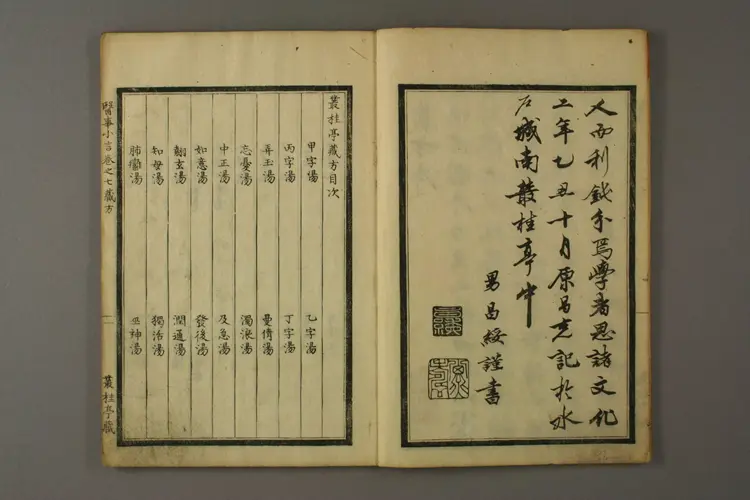 人而利鈍分焉學者思諸文化
二年乙丑十月原昌克記於水
戶城南叢桂亭中
男昌綏謹書
叢桂亭藏方目次
甲字湯 乙字湯
丙字湯 丁字湯
弄玉湯 曼倩湯
忘憂湯 湯
中正湯 及急湯
如意湯 發後湯
玄湯 潤通湯
知母湯 獨活湯
肺癰湯 巫神湯
醫事小言卷之七藏方 一 叢桂亭藏